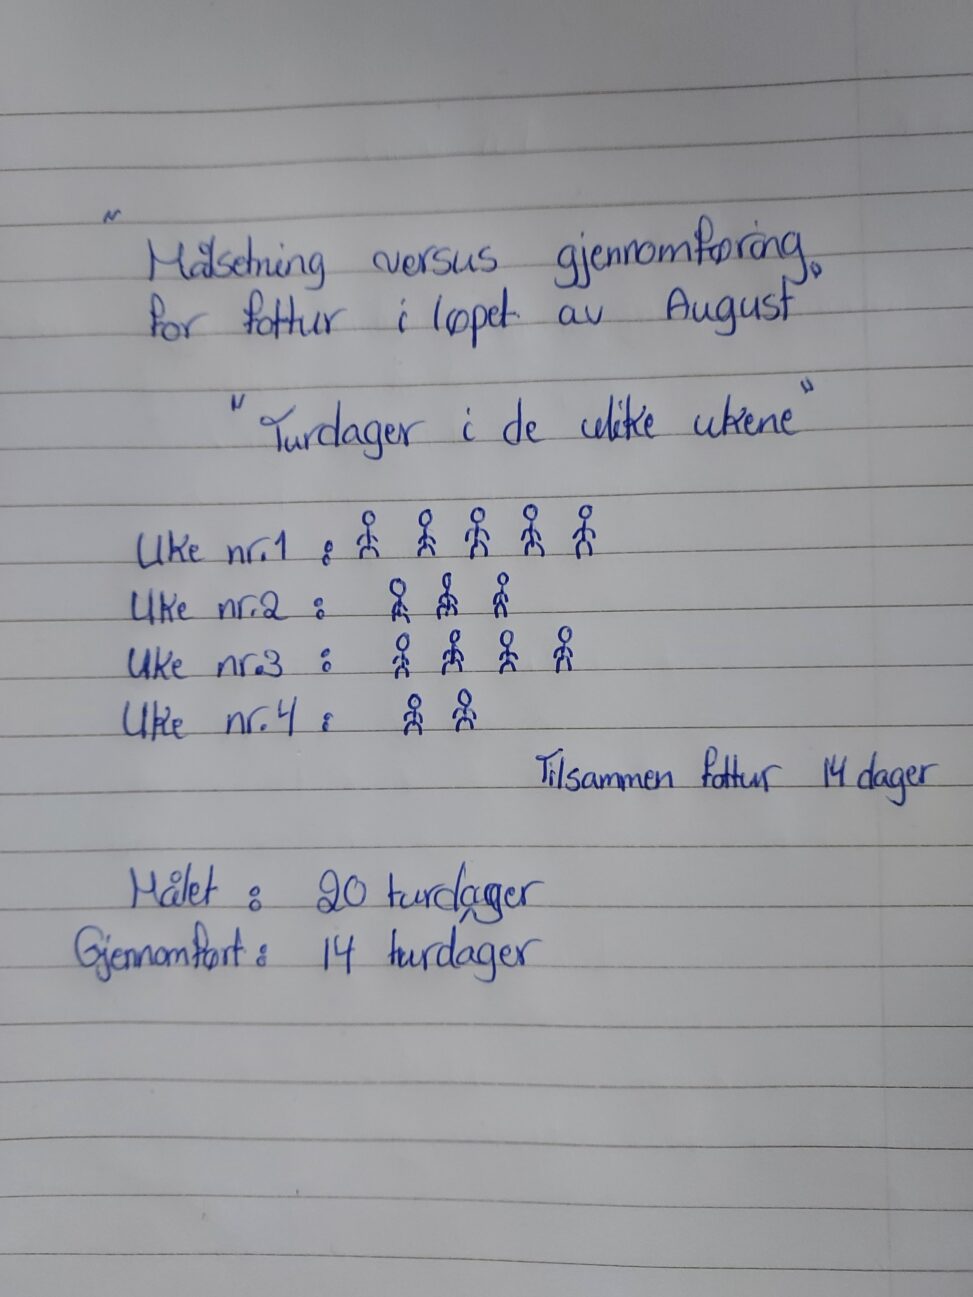 "Målsetning versus gjennomføring
for fottur i løpet av August"
"Turdager i de ulike ukene"
Uke nr.1 :
Uke nr.2 :
Uke nr.3 :
Uke nr.4 :
Tilsammen fottur 14 dager
Målet : 20 turdager
Gjennomført : 14 turdager